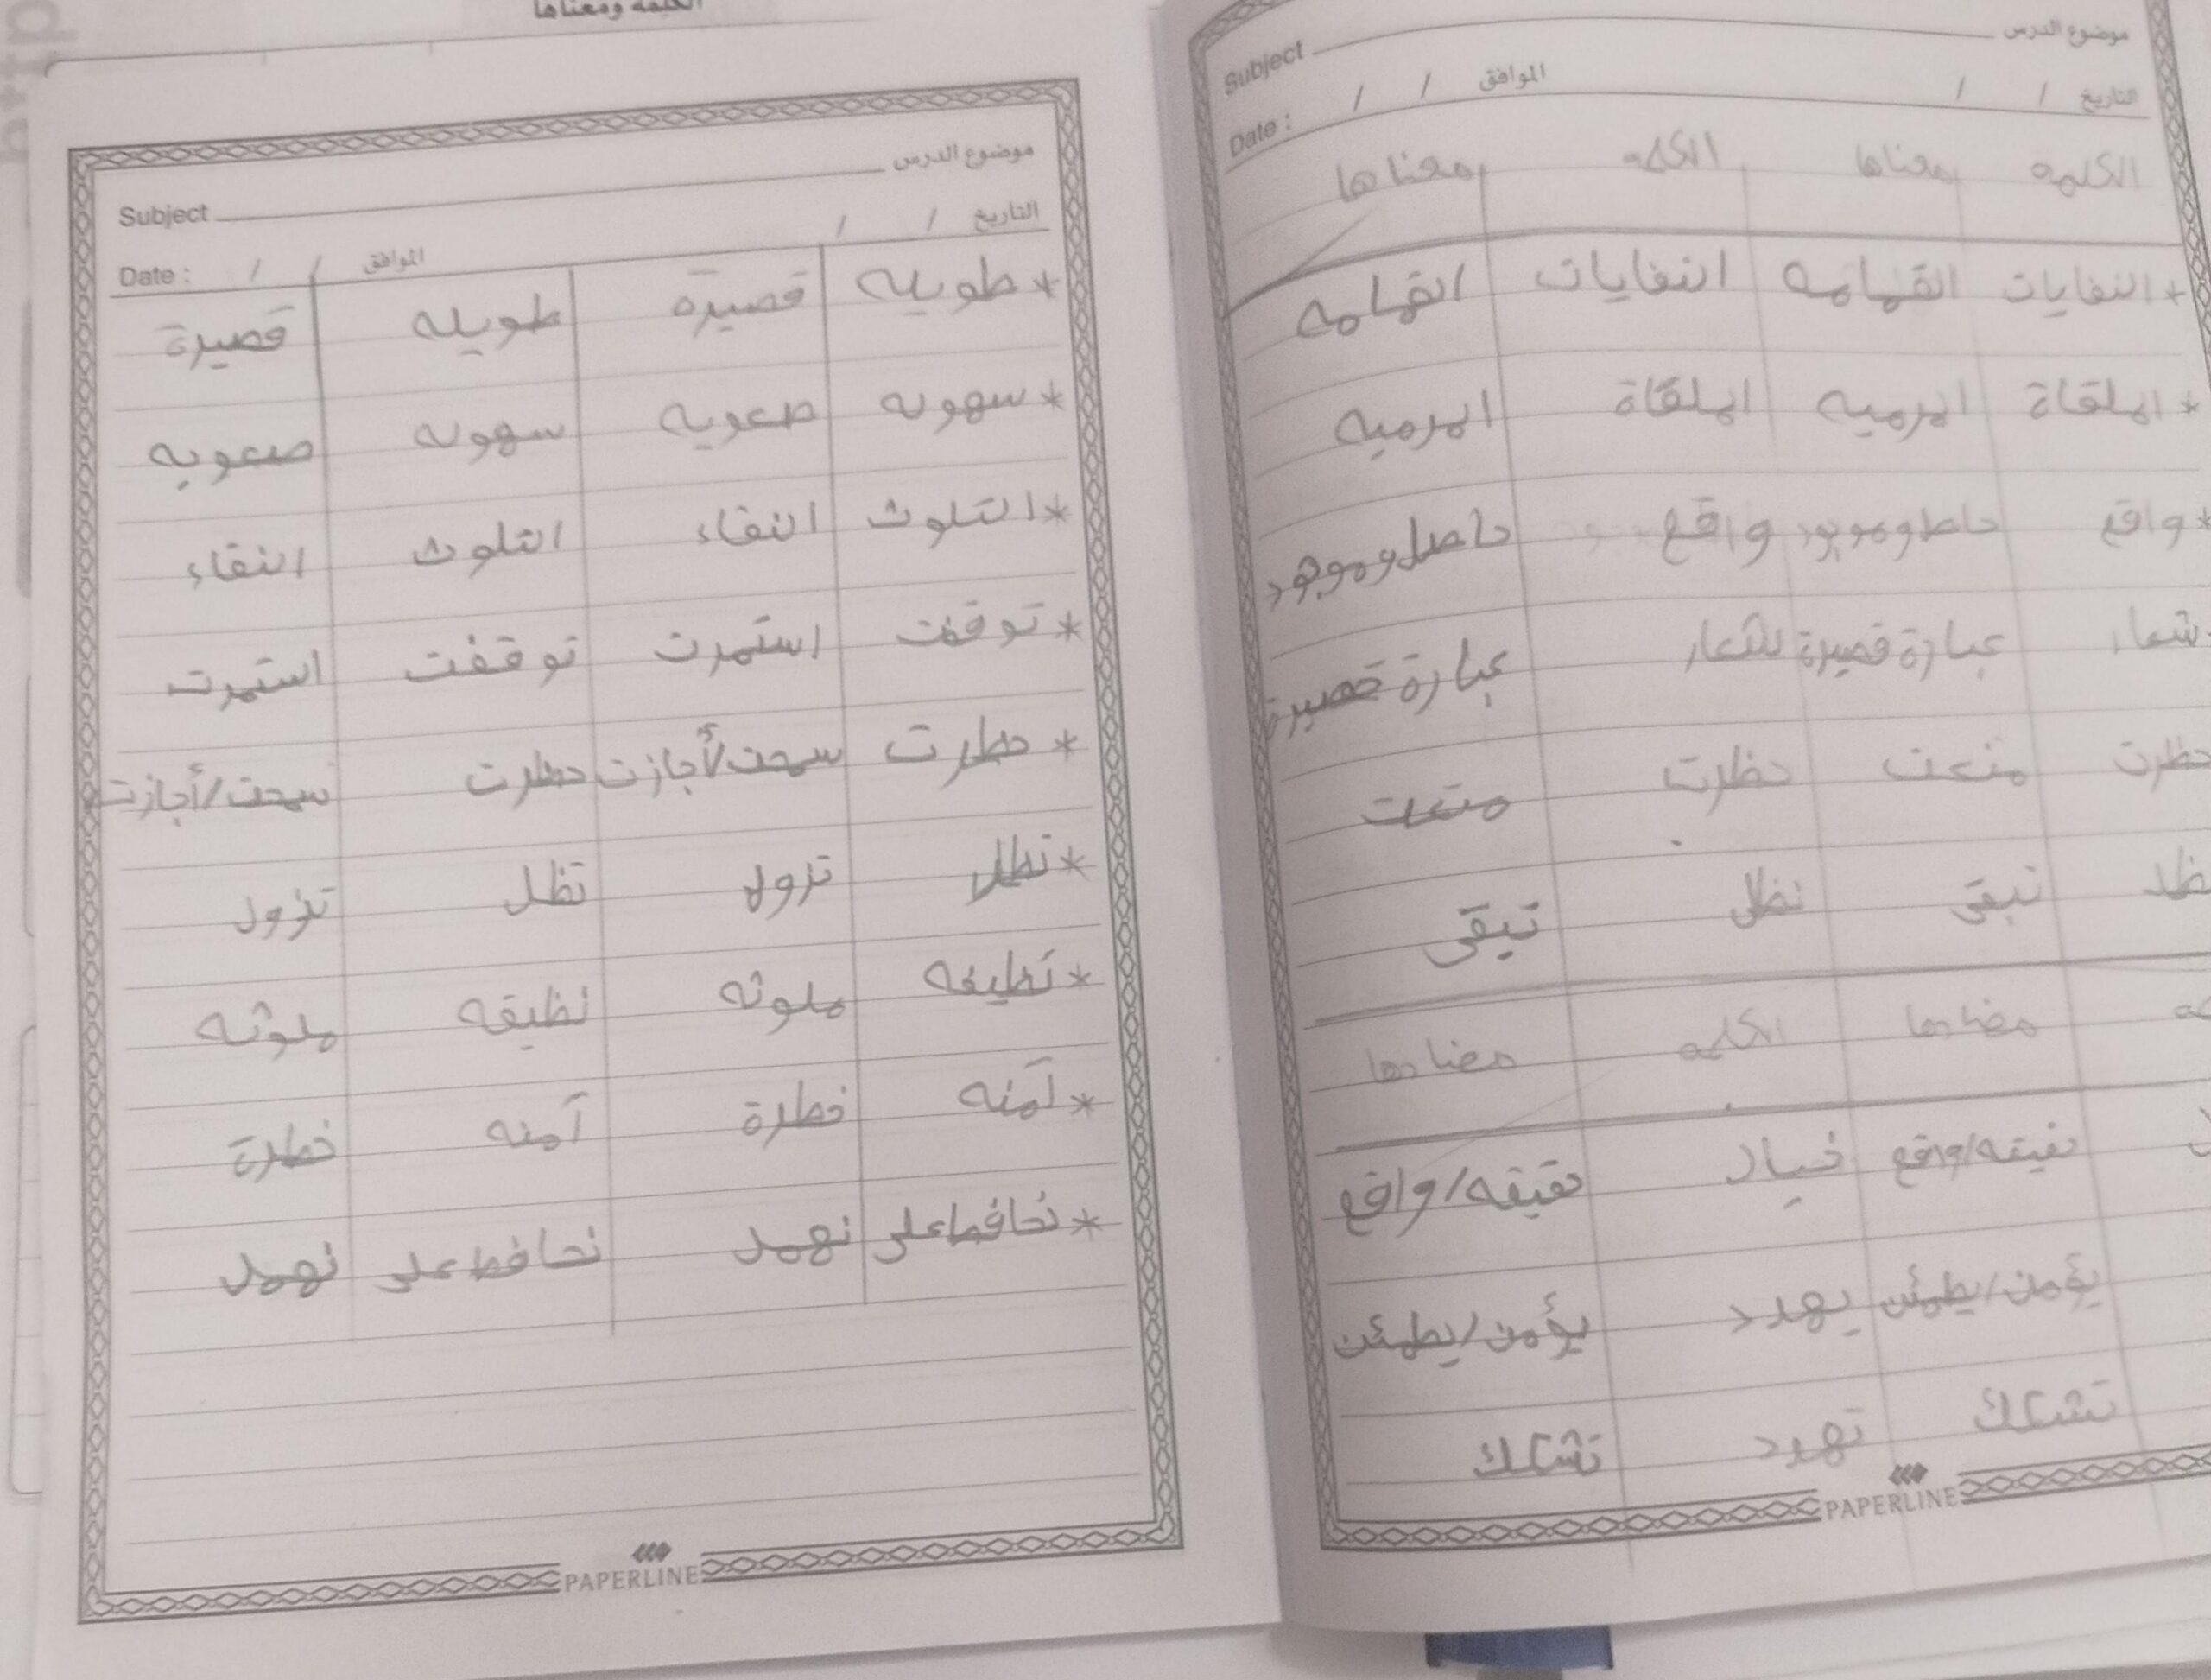 الكلمة ومعناها
موضوع الدرس Subject
التاريخ / / الموافق / / Date :
الكلمه معناها الكله معناها
+ النفايات القمامه النفايات القمامه
* الملقاة المرميه الملقاة المرميه
* واقع حاصل وموجود واقع حاصل وموجود
شعار عبارة قصيرة للشعار عبارة قصيرة
حظرت منعت حظرت منعت
تبقى تظل تبقى
معناها الكله معناها
حقيقه/واقع خيال حقيقه/واقع
يؤمن/يطمئن يهدد يؤمن/يطمئن
تشكك تهدد تشكك
PAPERLINE
موضوع الدرس Subject
التاريخ / / الموافق / / Date :
* طويله قصيرة طويله قصيرة
* سهوله صعوبه سهوله صعوبه
* التلوث النقاء التلوث النقاء
* توقفت استمرت توقفت استمرت
* حظرت سمحت/أجازت حظرت سمحت/أجازت
* تظل تزول تظل تزول
* نظيفه ملوثه نظيفه ملوثه
* آمنه خطرة آمنه خطرة
* نحافظ على نهمل نحافظ على نهمل
PAPERLINE